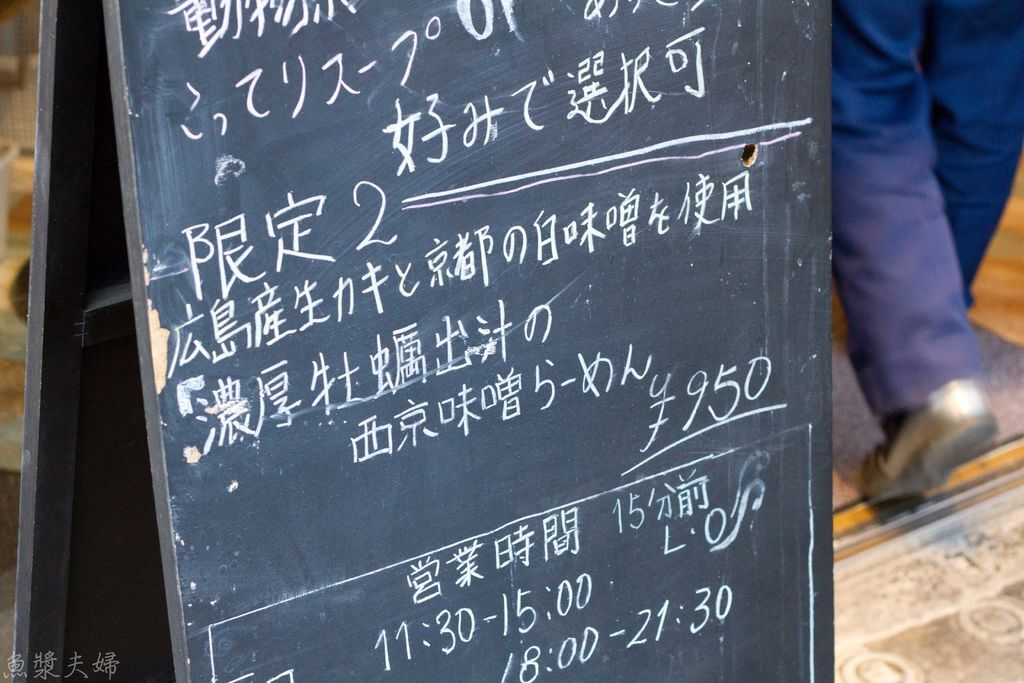 動物系
こってりスープ or
好みで選択可
限定2
広島産生カキと京都の白味噌を使用
「濃厚牡蠣出汁の
西京味噌らーめん ¥950
営業時間 15分前 L.O
11:30-15:00
18:00-21:30
魚漿夫婦